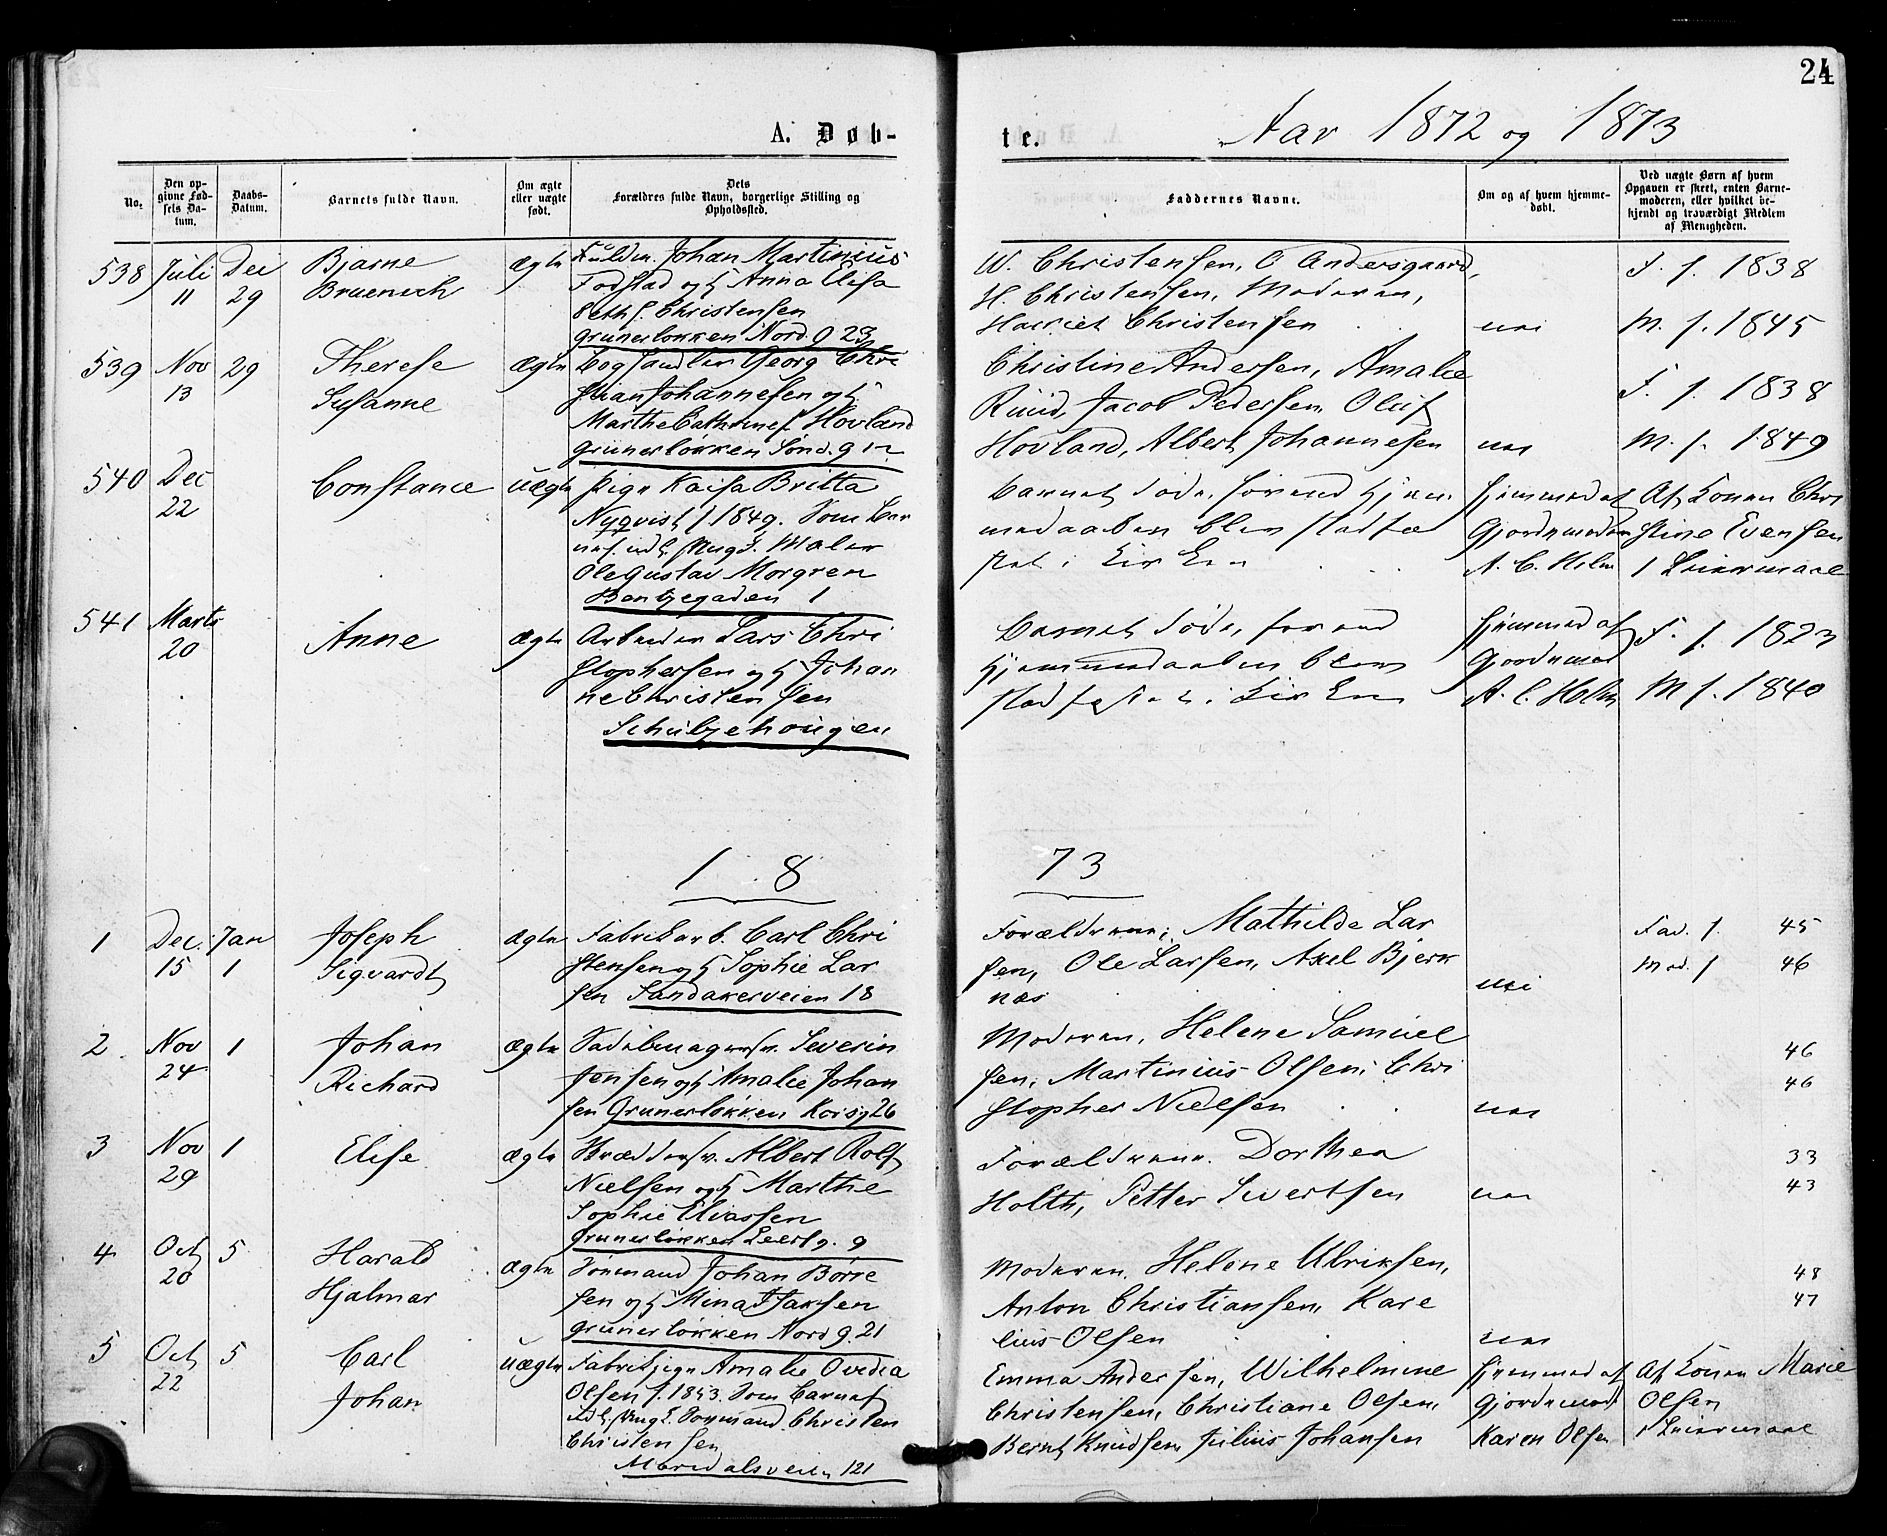 24
A. Døb-
te.
Aar 1872 og 1873
No.
Den op-
givne Fød-
sels Da-
tum.
Daabs-
Datum.
Barnets fulde Navn.
Om ægte
eller uægte
født.
Dets
Forældres fulde Navn, borgerlige Stilling og
Opholdssted.
Faddernes Navne.
Om og af hvem hjemme-
døbt.
Ved uægte Børn af hvem
Opgaven er skeet, enten Barne-
moderen, eller hvilket be-
kjendt og troværdigt Medlem
af Menigheden.
538 Juli 11 Dec 29
Bjarne
Bruenech
ægte
Fuldm. Johan Martinius
Fodstad og H Anna Elisa
beth f. Christensen
Grunerløkken Nord. g 23
W. Christensen, O Andersgaard,
H. Christensen, Moderen,
Harriet Christensen
nei
F. f. 1838
M. f. 1845
539 Nov 13 29
Therese
Susanne
ægte
Georg Chri
stian Johannesen og H
Marthe Cathrine f. Hovland
Grunerløkken Sønd. g 12
Christine Andersen, Amalie
Ruud, Jacob Pedersen, Oluf
Hovland, Albert Johannesen
nei
F. f. 1838
M. f. 1849
540 Dec 22
Constance
uægte
Pige Kaisa Britta
Nyqvist f 1849. Som Bar
nef. udl. Ung. Maler
Ole Gustav Morgren
Bentzegaden 1
Barnet døde, førend hjem
medaaben blev stadfæ
stet i Kirken
hjemmed af
Gjordemoder
A. C. Holm
Af Konen Chri
stine Evensen
1 Leiermaal
541 Marts 20
Anne
ægte
Arbeider Lars Chri
stophersen og H Johan
ne Christensen
Schultzehougen
Barnet døde, førend
hjemmedaaben blev
stadfæstet i Kirken
hjemmed af
Gjordemod
A. C. Holm
F. f. 1823
M f. 1840
18
73
1 Dec. 15 Jan 1
Joseph
Sigvardt
ægte
Fabrikarb. Carl Chri
stensen og H Sophie Lar
sen Sandakerveien 18
Forældrene, Mathilde Lar
sen, Ole Larsen, Axel Bjerk
næs
nei
Fad. f. 45
Mod. f 46
2 Nov 24 1
Johan
Richard
ægte
Sadelmagersv. Severin
Jensen og H Amalie Johan
sen Grunerløkken Korsg 26
Moderen, Helene Samuel
sen, Martinius Olsen, Chri
stopher Nielsen
nei
46
46
3 Nov 29 1
Elise
ægte
Albert Rolf
Nielsen og H Marthe
Sophie Eliassen
Grunerløkken g. 9
Forældrene. Dorthea
Holth, Petter Sivertsen
nei
33
43
4 Oct 20 5
Harald
Hjalmar
ægte
Sømand Johan Børre
sen og H Mina Isaksen
Grunerløkken Nord g. 21
Moderen. Helene Ulriksen,
Anton Christiansen, Kare
lius Olsen
nei
48
47
5 Oct 22 5
Carl
Johan
uægte
Fabrikpige Amalie Ovedia
Olsen f. 1853. Som Barnef
udl. Ung. Sømand Christen
Christensen
Maridalsveien 121
Emma Andersen, Wilhelmine
Christensen, Christiane Olsen,
Bernt Knudsen, Julius Johansen
hjemmed af
Gjordemod
Karen Olsen
Af Konen Marie
Olsen
1 Leiermaal